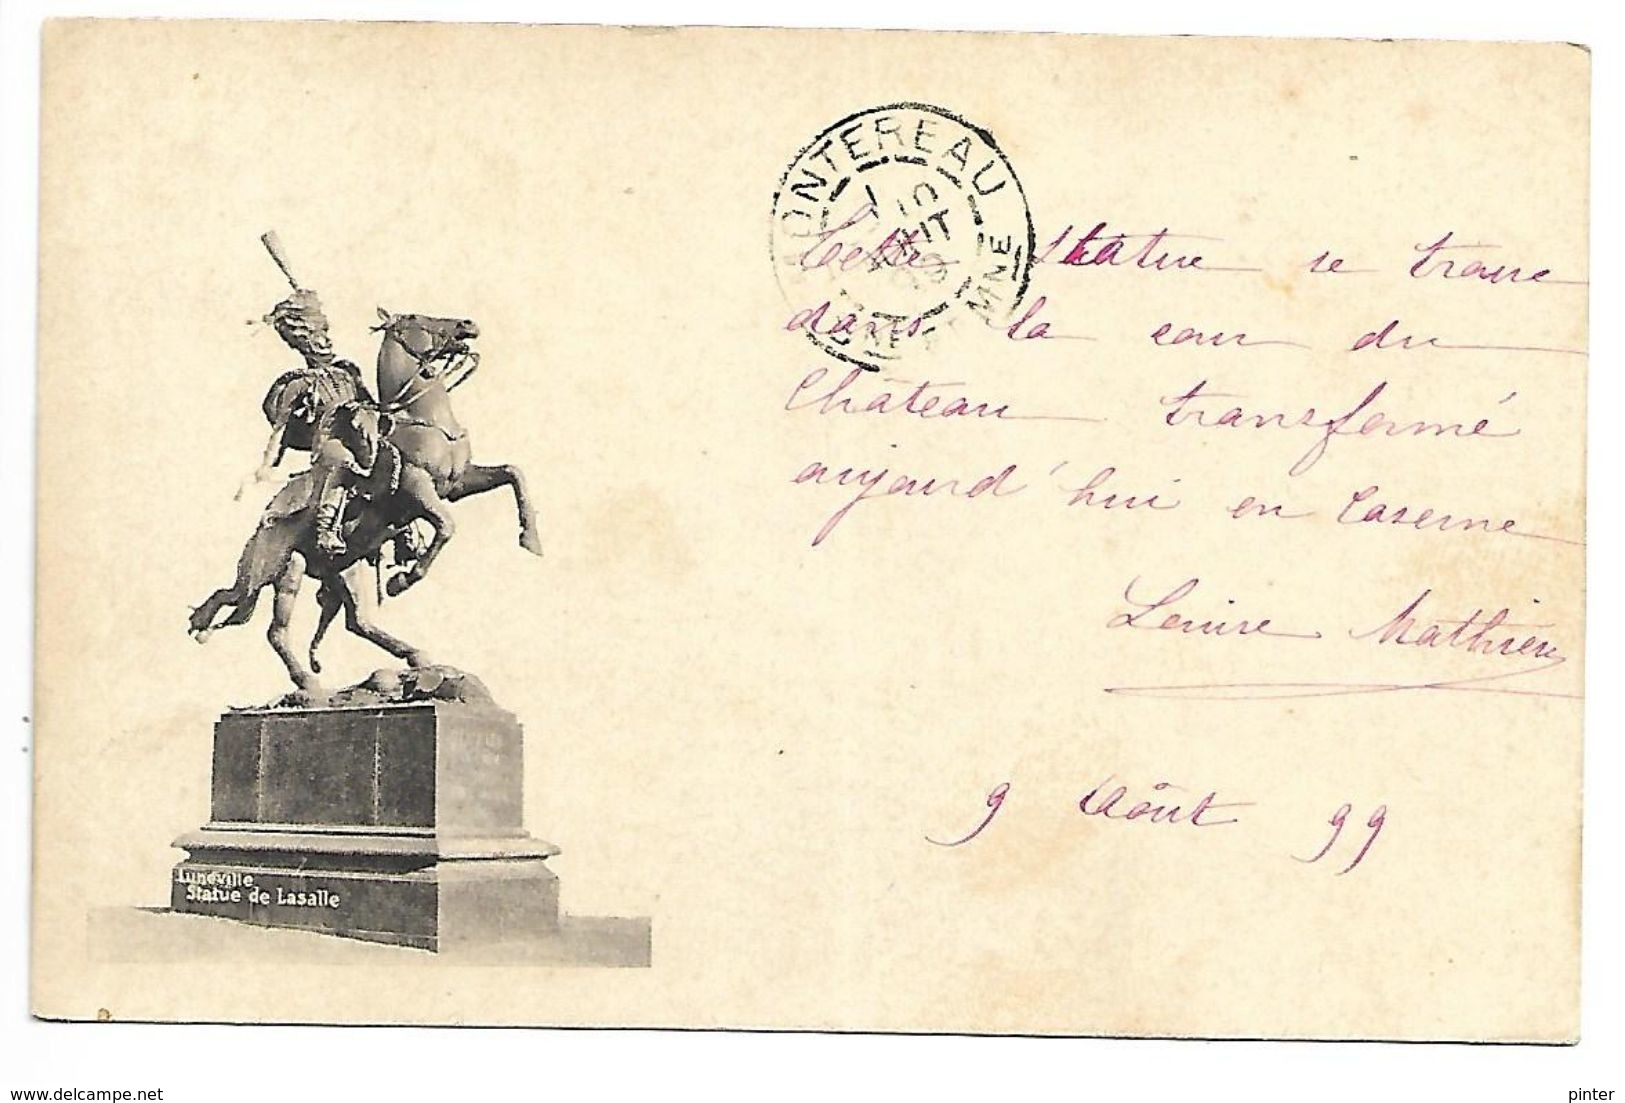 MONTEREAU
10
AOUT
99
SEINE ET MARNE
Cette statue se trouve
dans la cour du
Château transformé
aujourd'hui en Caserne
Louise Mathieu
9 Août 99
Lunéville
Statue de Lasalle
delcampe.net
pinter